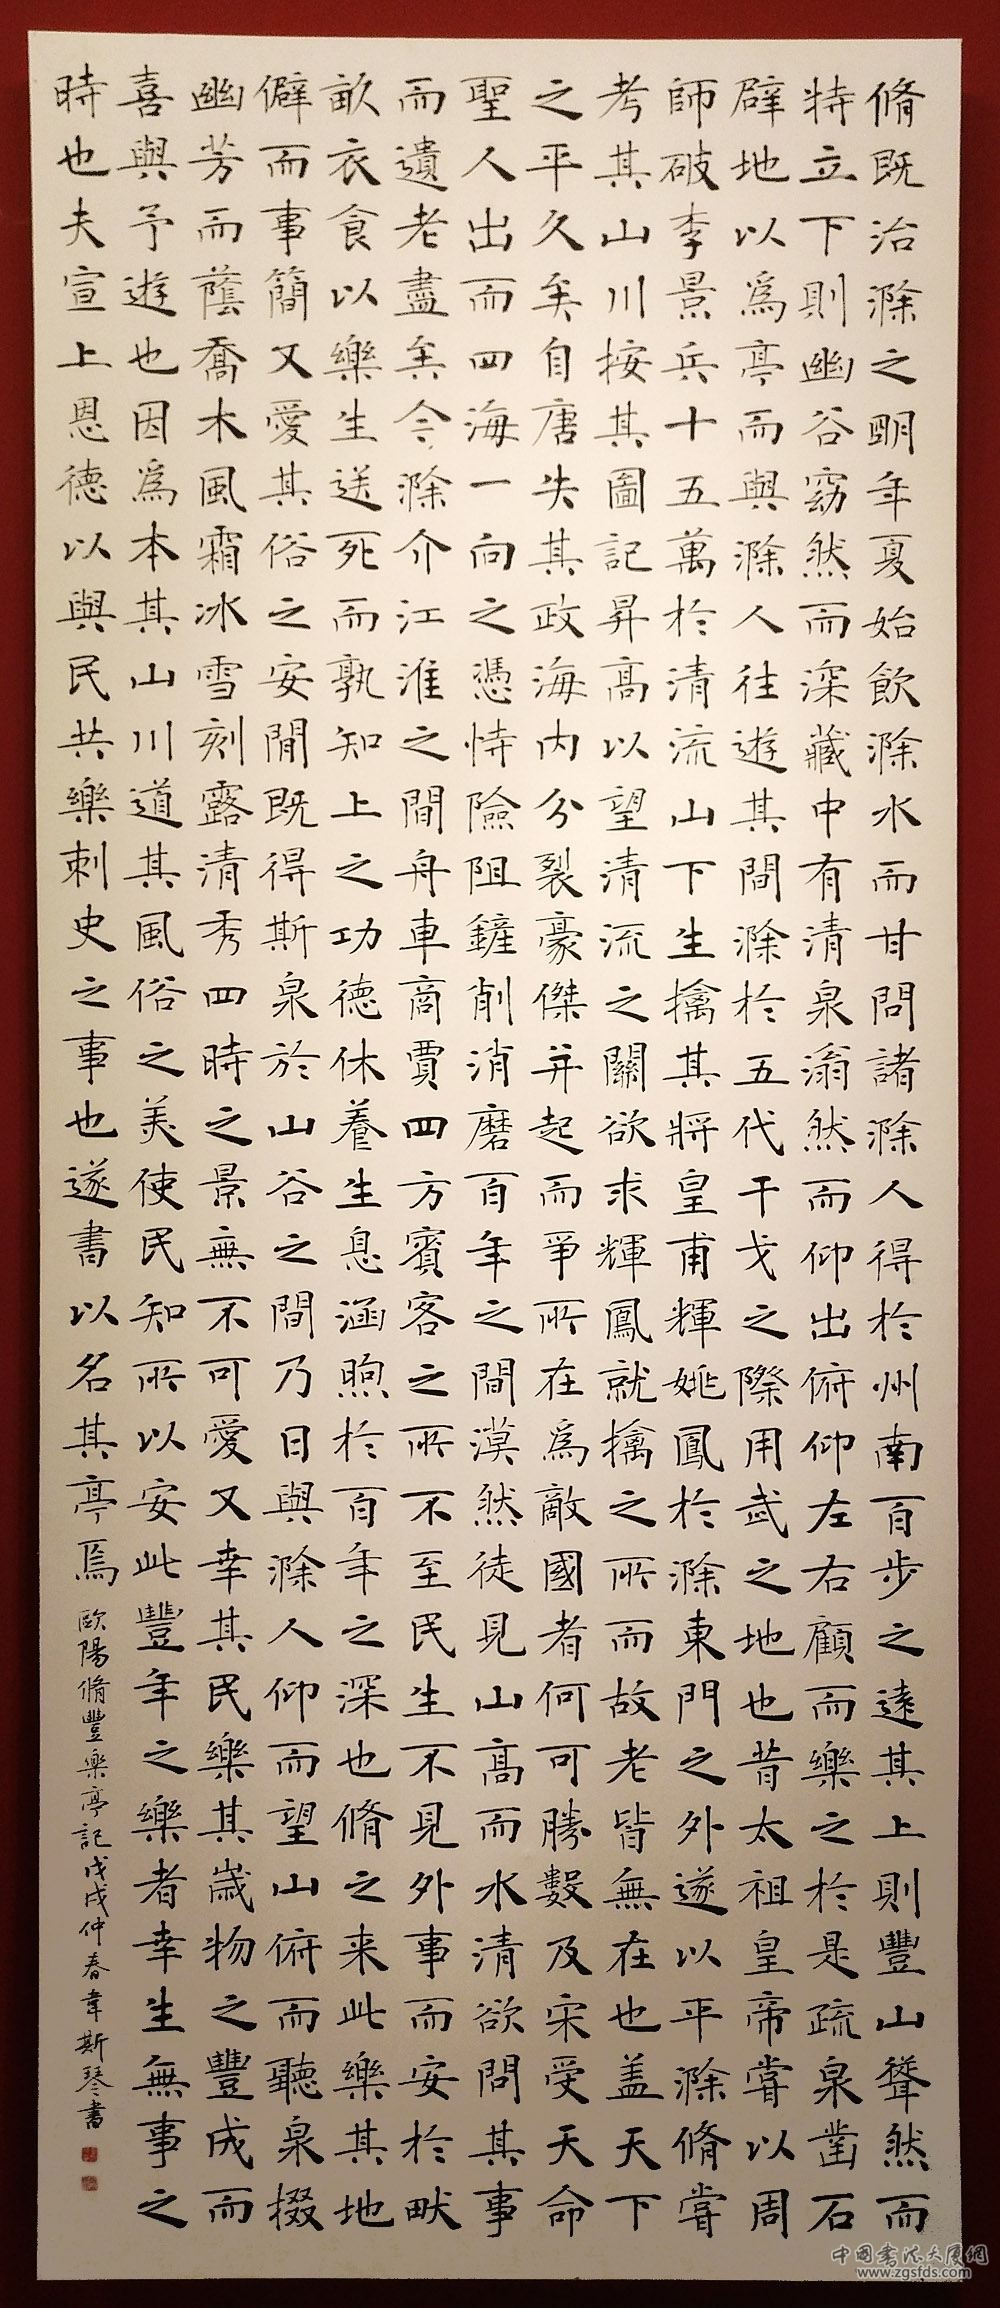 脩既治滁之明年夏始飲滁水而甘問諸滁人得於州南百步之遠其上則豐山聳然而
特立下則幽谷窈然而深藏中有清泉滃然而仰出俯仰左右顧而樂之於是疏泉鑿石
辟地以爲亭而與滁人往遊其間滁於五代干戈之際用武之地也昔太祖皇帝嘗以周
師破李景兵十五萬於清流山下生擒其將皇甫輝姚鳳於滁東門之外遂以平滁脩嘗
考其山川按其圖記昇高以望清流之關欲求輝鳳就擒之所而故老皆無在也盖天下
之平久矣自唐失其政海内分裂豪傑并起而爭所在爲敵國者何可勝數及宋受天命
聖人出而四海一向之憑恃險阻鏟削消磨百年之間漠然徒見山高而水清欲問其事
而遺老盡矣今滁介江淮之間舟車商賈四方賓客之所不至民生不見外事而安於畎
畝衣食以樂生送死而孰知上之功德休養生息涵煦於百年之深也脩之来此樂其地
僻而事簡又愛其俗之安閒既得斯泉於山谷之間乃日與滁人仰而望山俯而聽泉掇
幽芳而蔭喬木風霜冰雪刻露清秀四時之景無不可愛又幸其民樂其歲物之豐成而
喜與予遊也因爲本其山川道其風俗之美使民知所以安此豐年之樂者幸生無事之
時也夫宣上恩德以與民共樂刺史之事也遂書以名其亭焉
歐陽脩豐樂亭記戊戌仲春韋斯琴書
中國書法大厦網
www.zgsfds.com